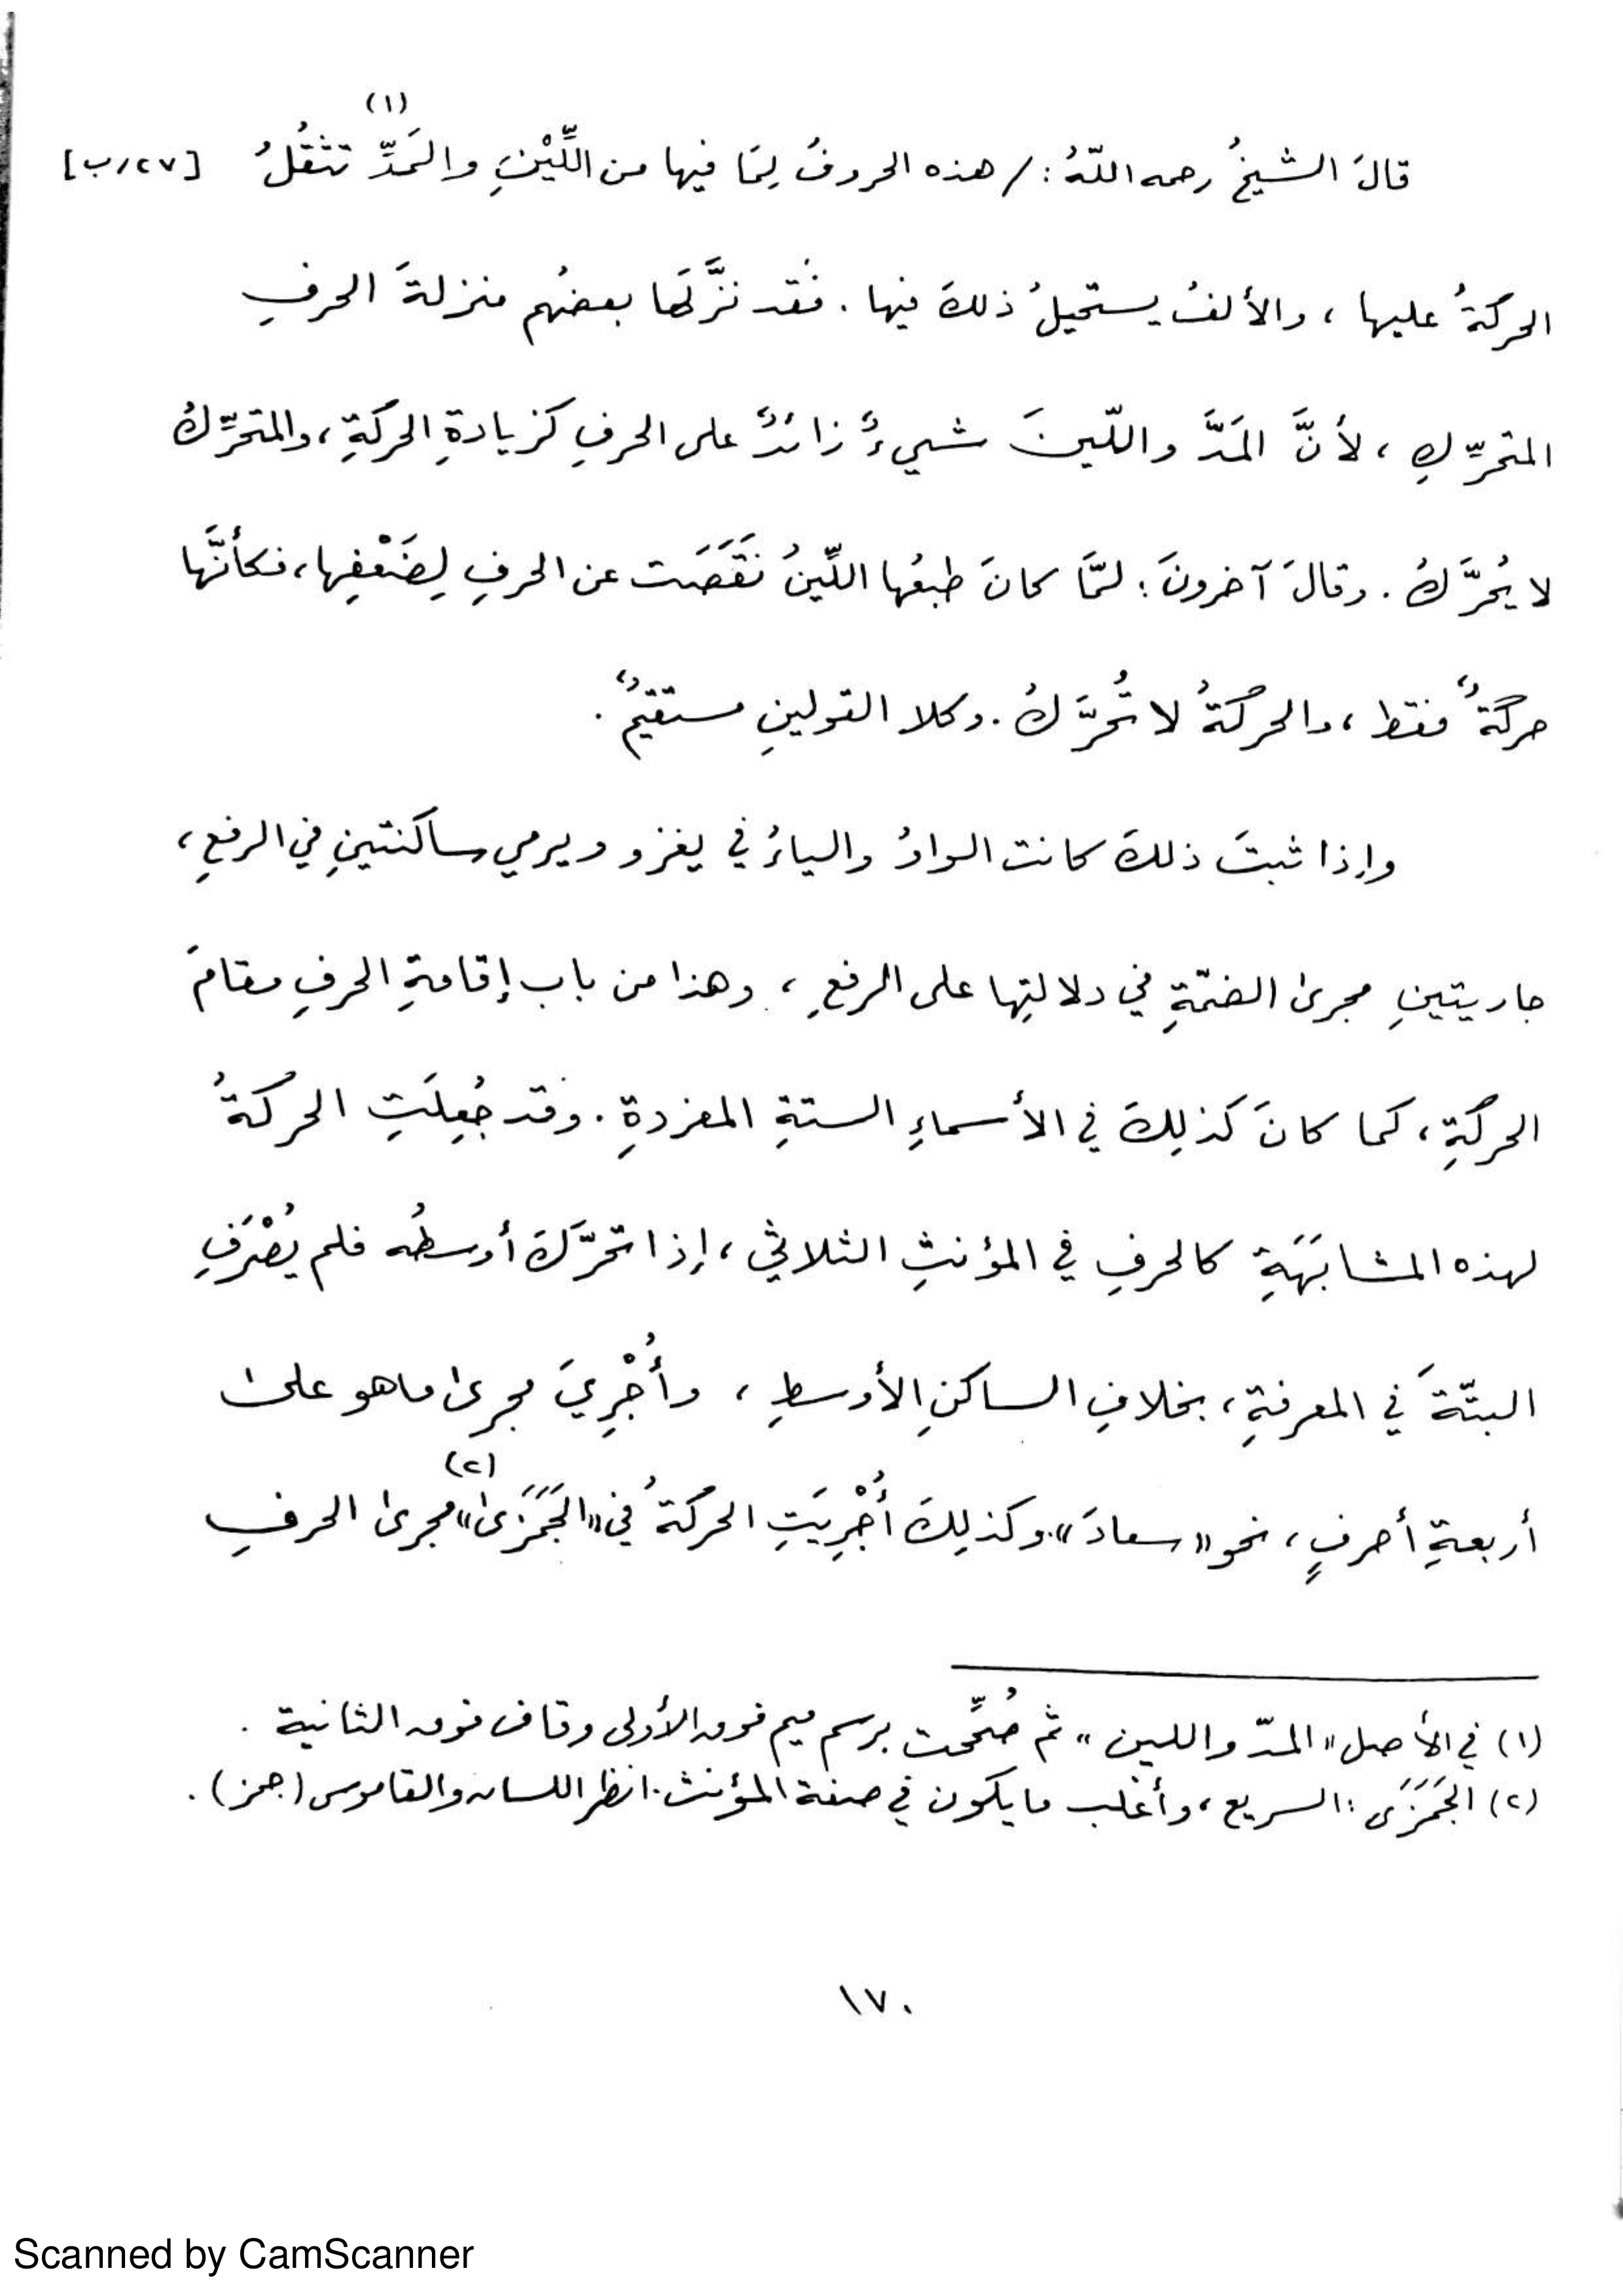 قالَ الشيخُ رحمه اللّهُ : / هذه الحروفُ لِمَا فيها من اللِّيْنِ والمَدِّ (١) تثقُلُ [٢٧/ب]
الحركةُ عليها ، والألفُ يستحيلُ ذلكَ فيها . فَقد نزَّلَها بعضُهم منزلةَ الحرفِ
المتحرِّكِ ، لأنَّ المَدَّ واللّينَ شيءٌ زائدٌ على الحرفِ كزيادةِ الحركةِ ، والمتحرِّكُ
لا يُحَرَّكُ . وقالَ آخرونَ : لمَّا كانَ طبعُها اللِّينُ نَقَصَت عن الحرفِ لِضَعْفِها ، فكأنَّها
حركةٌ فقط ، والحركةُ لا تُحَرَّكُ . وكلا القولينِ مستقيمٌ .
وإذا ثبتَ ذلكَ كانت الواوُ والياءُ في يغزو ويرمي ساكنتينِ في الرفعِ ،
جاريتينِ مجرىٰ الضمّةِ في دلالتِها على الرفعِ ، وهذا من باب إقامةِ الحرفِ مقامَ
الحركةِ ، كما كانَ كذلِكَ في الأسماءِ الستةِ المفردةِ . وقد جُعِلَتِ الحركةُ
لهذه المشابَهَةِ كالحرفِ في المؤنثِ الثلاثي ، إذا تحرَّكَ أوسطُه فلم يُصْرَفِ
البتّةَ في المعرفةِ ، بخلافِ الساكنِ الأوسطِ ، وأُجْرِيَ مجرىٰ ما هو علىٰ
أربعةِ أحرفٍ ، نحو «سعادَ» . وكذلِكَ أُجْرِيَتِ الحركةُ في «الجَمَزَىٰ» (٢) مجرىٰ الحرفِ
(١) في الأصل «المدّ واللين» ثم صُحِّحت برسم ميم فوق الأولى وقاف فوق الثانية .
(٢) الجَمَزَى : السريع ، وأغلب ما يكون في صفة المؤنث . انظر اللسان والقاموس (جمز) .
١٧٠
Scanned by CamScanner